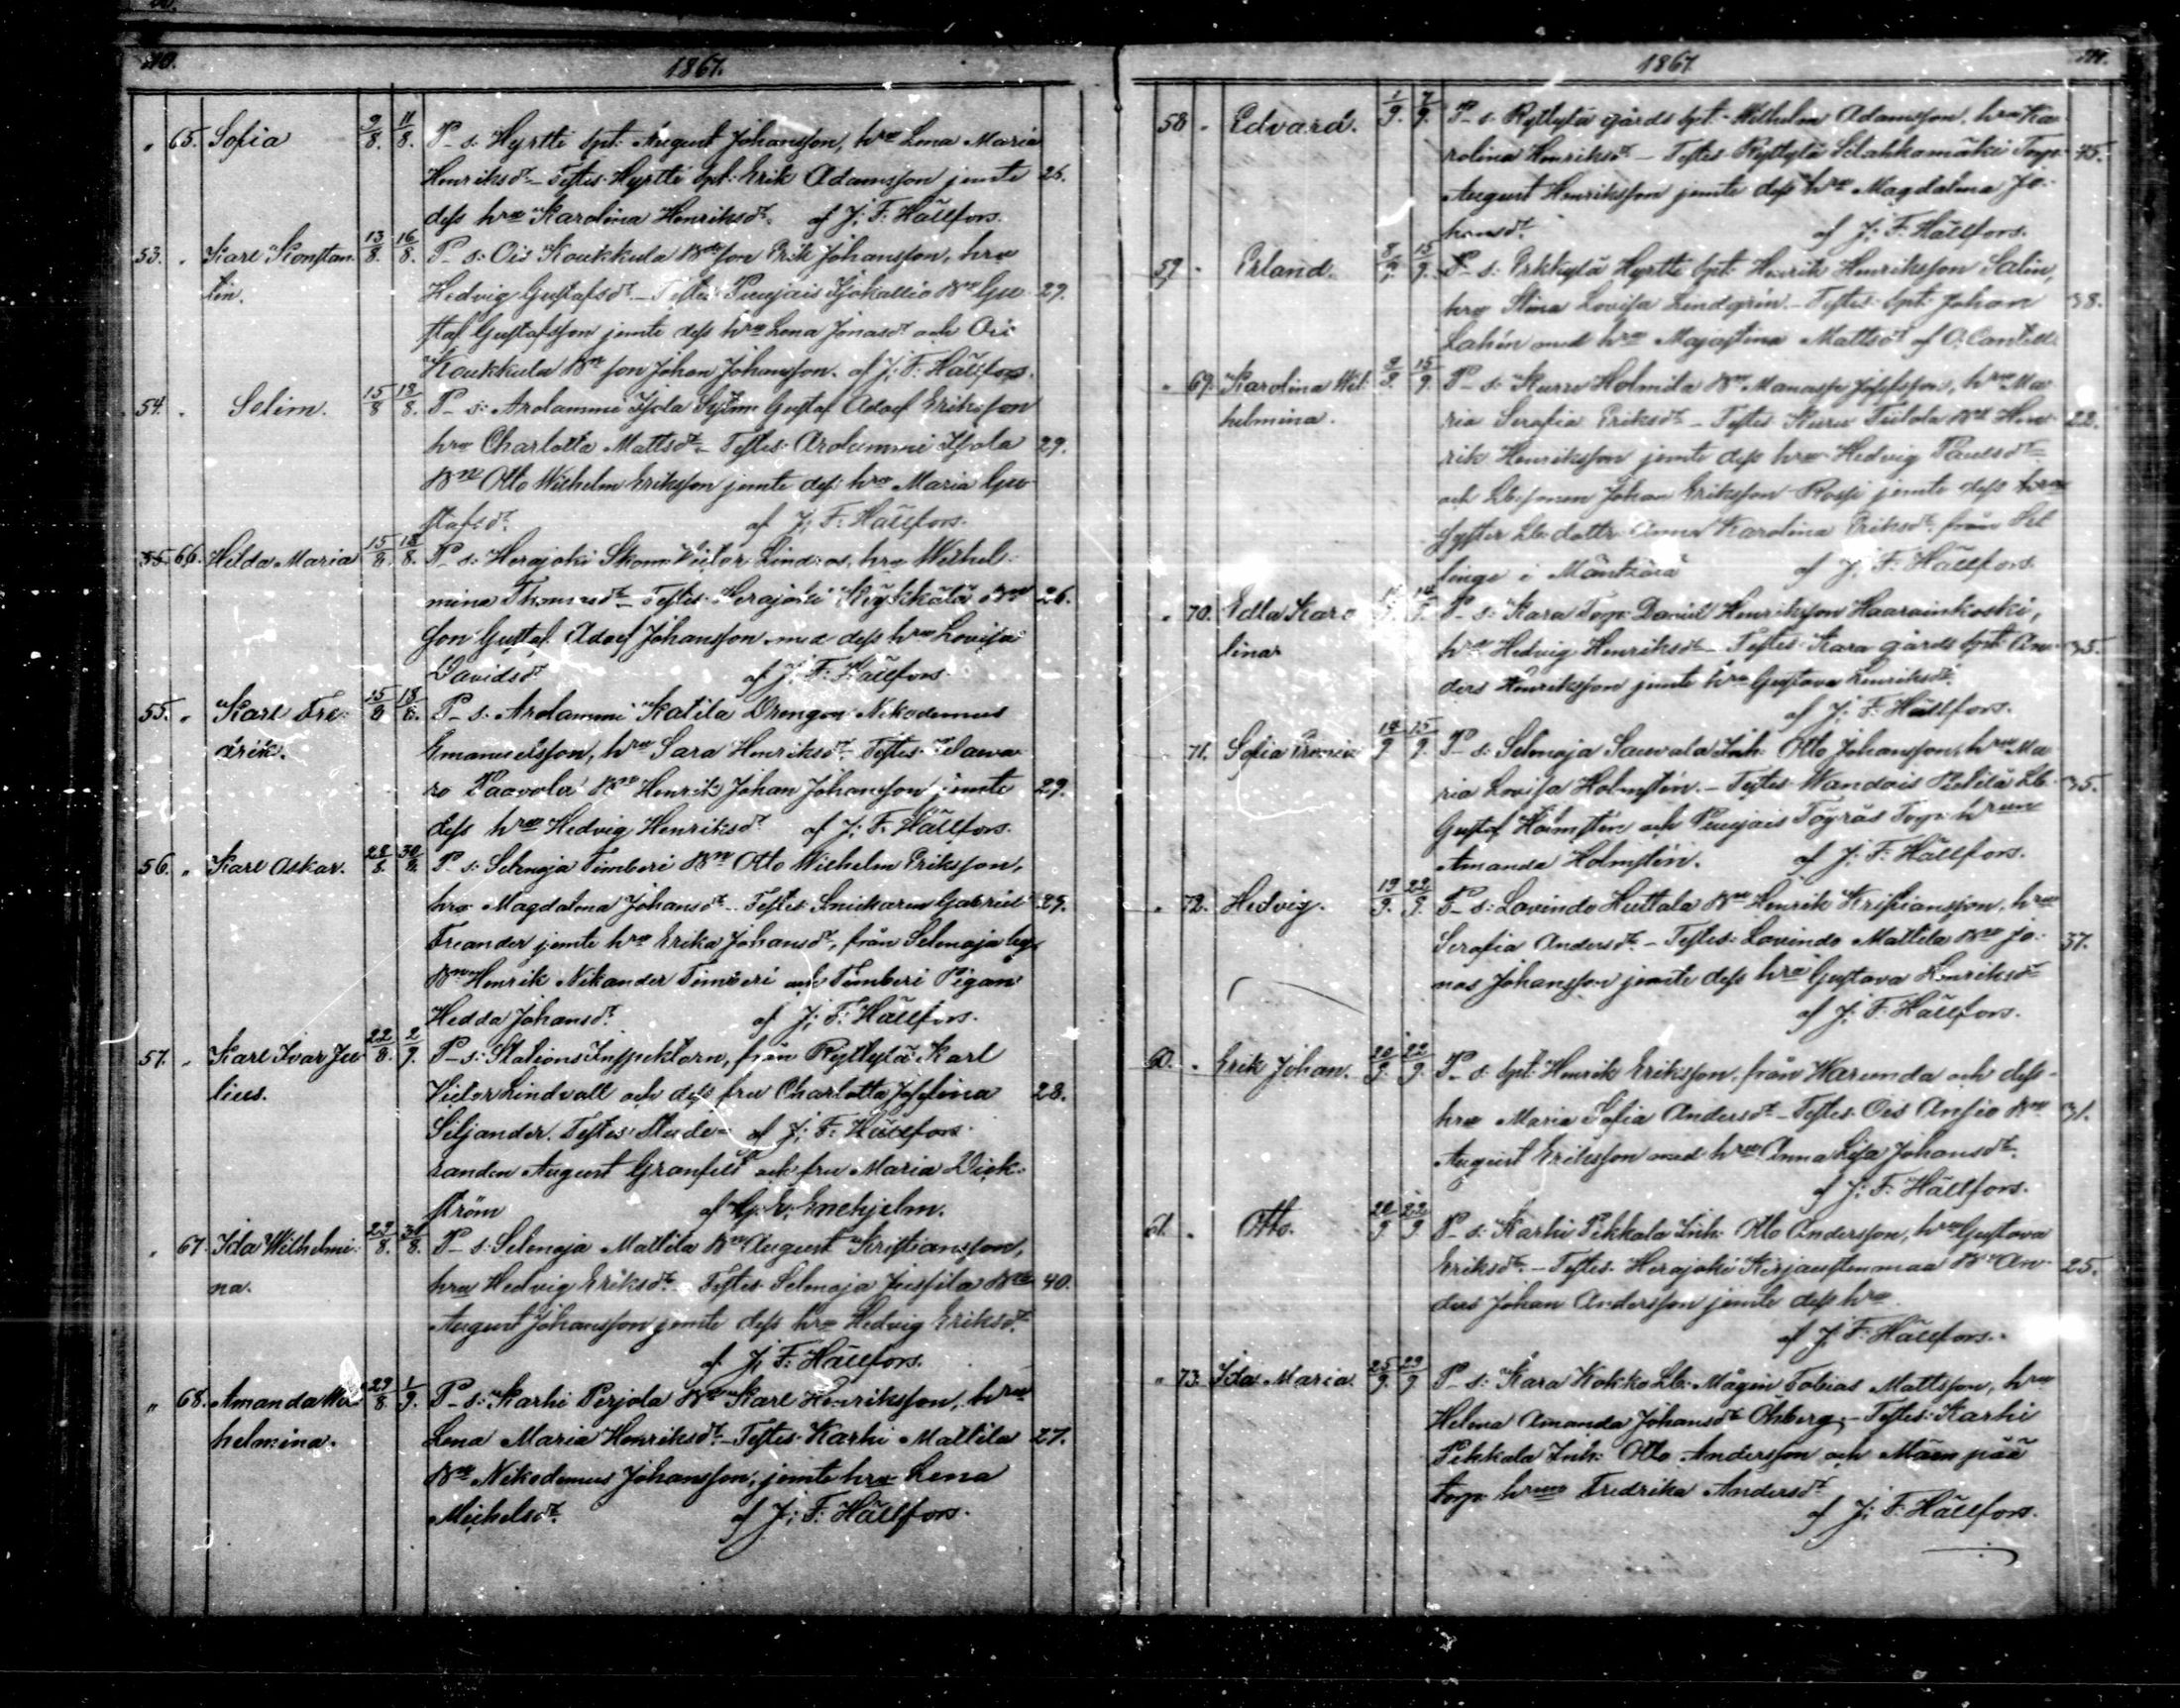 210.
1867.
" 65. Sofia 9/8. 11/8. P_s: Hyrtti spt: August Johansson, hru Lena Maria
Henriksdt_ Testes: Hyrtti spt: Erik Adamsson jemte 26.
dess hru Karolina Henriksdt. af J: F: Hällfors.
53. " Karl Konstan- 13/8. 16/8. P_s: Ois Koukkula Bdeson Erik Johansson, hru
tin. Hedvig Gustafsdt._ Testes: Isokallio Bn Gu- 29.
staf Gustafsson jemte dess hru Lena Jonasdt och Ois
Koukkula Bn son Johan Johansson. af J: F: Hällfors.
54. " Selim. 15/8 18/8. P_s: Arolammi Isola Gustaf Adolf Eriksson
hru Charlotta Mattsdt_ Testes: Arolammi Isola 29.
Bn Otto Wilhelm Eriksson jemte dess hru Maria Gu-
stafsdt. af J: F: Hällfors.
55. 66. Hilda Maria 15/8. 18/8. P_s: Herajoki Skom: Victor hru Wilhel-
mina Thomasdt_ Testes: Herajoki Bn 26.
son Gustaf Adolf Johansson med dess hru Lovisa
Davidsdt af J: F: Hällfors.
55. " Karl Fre- 15/8 18/8. P_s: Arolammi Katila Drengen Nikodemus
drik. Emanuelsson, hru Sara Henriksdt. Testes:
Paavola Bn Henrik Johan Johansson jemte 29.
dess hru Hedvig Henriksdt af J: F: Hällfors.
56. " Karl Oskar. 28/8. 30/8. P_s: Selmaja Timberi Bn Otto Wilhelm Eriksson,
hru Magdalena Johansdt_ Testes: Snickaren Gabriel 29.
Freander jemte hru Erika Johansdt, från Selmaja
Bn Henrik Nikander Timberi och Timberi Pigan
Hedda Johansdt. af J: F: Hällfors.
57. " Karl Ivar Ju- 22/8. 2/9. P_s: Stations Inspektorn, från Ryttylä Karl
lius. Victor Lindvall och dess fru Charlotta Josefina 28.
Siljander. Testes: Stude- af J: F: Hällfors.
randen August Granfelt och fru Maria Wick-
ström af Enehjelm.
" 67. Ida Wilhelmi- 29/8. 30/8. P_s: Selmaja Mattila Bn August Kristiansson,
na. hru Hedvig Eriksdt. Testes: Selmaja Jussila Bn 40.
August Johansson jemte dess hru Hedvig Eriksdt.
af J: F: Hällfors.
" 68. Amanda Wil- 29/8 1/9. P_s: Karhi Perjola Bn Karl Henriksson, hru
helmina. Lena Maria Henriksdt._ Testes: Karhi Mattila 27.
Bn Nikodemus Johansson, jemte hru Lena
Michelsdt. af J: F: Hällfors.
1867
211.
58 " Edvard. 1/9. 7/9. P_s: Ryttylä gårds spt: Wilhelm Adamsson, hru Ka-
rolina Henriksdt_ Testes: Ryttylä Torp: 45.
August Henriksson jemte dess hru Magdalena Jo-
hansdt. af J: F: Hällfors.
59 " Erland. 8/9. 15/9. P_s: Erkkylä Hyrtti spt: Henrik Henriksson Salin,
hru Stina Lovisa Lindgrén._ Testes: spt: Johan 38.
Lahén med hru Majastina Mattsdt af O: Cantell.
" 69. Karolina Wil- 9/9. 15/9. P_s: Kurru Holmila Bn Manasse Josefsson, hru Ma-
helmina. ria Serafia Eriksdt_ Testes: Kurru Bn Hen- 22.
rik Henriksson jemte dess hru Hedvig Paulsdt
och Lb:sonen Johan Eriksson Rossi jemte dess
syster Lb: dottr: Anna Karolina Eriksdt. från
linge i Mäntsälä af J: F: Hällfors.
" 70. Edla Karo- P_s: Kara Torp: Daniel Henriksson Haarainkoski,
lina. hru Hedvig Henriksdt_ Testes: Kara gårds spt: An- 35.
ders Henriksson jemte hru Gustava Henriksdt.
af J: F: Hällfors.
" 71. Sofia 14/9 15/9. P_s: Selmaja Sauvala Inh: Otto Johansson, hru Ma-
ria Lovisa Holmstén._ Testes: Wandais Lb: 35.
Gustaf Holmstén och Torp: hrun
Amanda Holmstén. af J: F: Hällfors.
" 72. Hedvig. 19/9. 22/9. P_s: Lavindo Huttala Bn Henrik Kristiansson, hru
Serafia Andersdt_ Testes: Lavindo Mattila Bn Jo- 37.
nas Johansson jemte dess hru Gustava Henriksdt
af J: F: Hällfors.
60. " Erik Johan. 20/9. 22/9. P_s: spt: Henrik Eriksson, från Warunda och dess
hru Maria Sofia Andersdt_ Testes: Ois Ansio Bn 31.
August Eriksson med hru Anna Lisa Johansdt.
af J: F: Hällfors.
61. " Otto. 20/9 22/9 P_s: Karhi Pekkala Inh: Otto Andersson, hru Gustava
Eriksdt._ Testes: Herajoki Kirjanstenmaa Bn An- 25.
ders Johan Andersson jemte dess hru.
af J: F: Hällfors.
" 73. Ida Maria. 25/9. 29/9 P_s: Kara Kokko Lb: Mågen Tobias Mattsson, hru
Helena Amanda Johansdt Ohberg;_ Testes: Karhi
Pekkala Inh: Otto Andersson och
torp: hrun Fredrika Andersdt
af J: F: Hällfors.